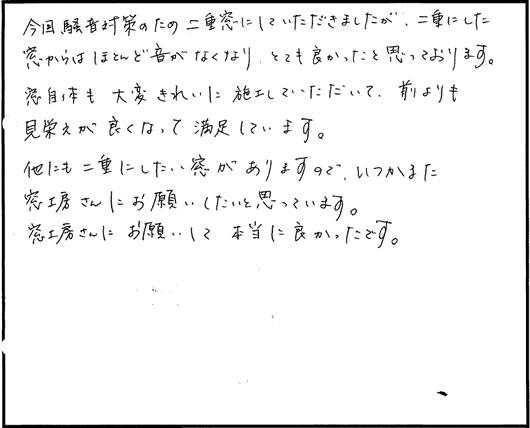 今回騒音対策のため二重窓にしていただきましたが、二重にした
窓からはほとんど音がなくなり、とても良かったと思っております。
窓自体も大変きれいに施工していただいて、前よりも
見栄えが良くなって満足しています。
他にも二重にしたい窓がありますので、いつかまた
窓工房さんにお願いしたいと思っています。
窓工房さんにお願いして本当に良かったです。